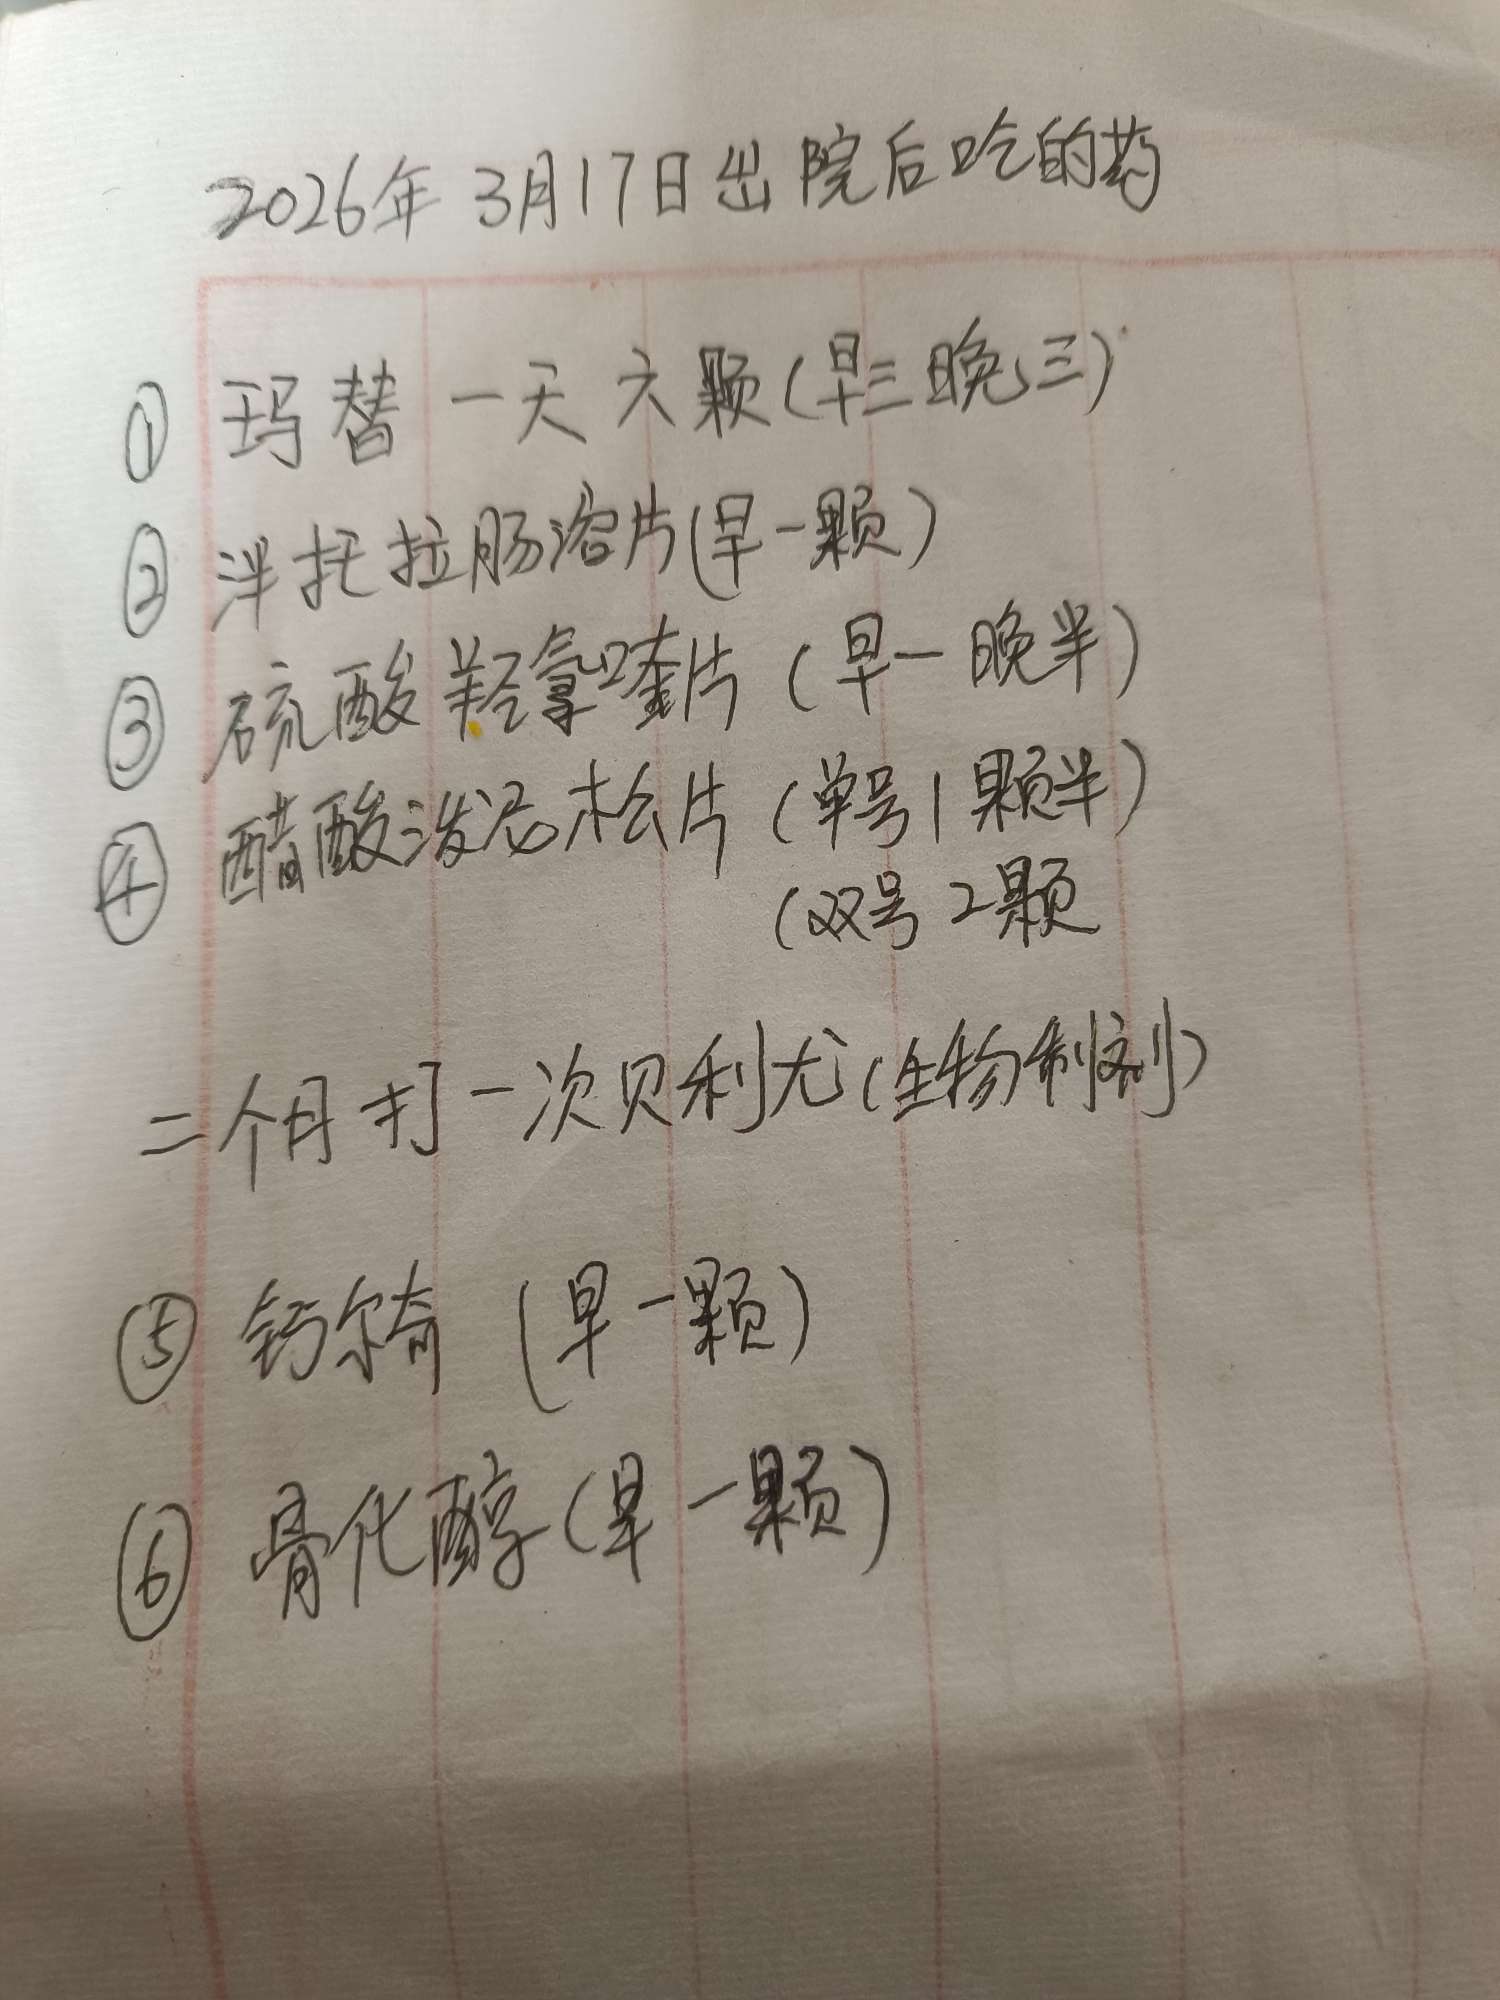 2026年3月17日出院后吃的药
① 玛替一天六颗(早三晚三)
② 泮托拉肠溶片(早一颗)
③ 硫酸羟拿喹片(早一晚半)
④ 醋酸泼尼松片(单号1颗半)
(双号2颗
二个月打一次贝利尤(生物制剂)
⑤ 钙尔奇(早一颗)
⑥ 骨化醇(早一颗)